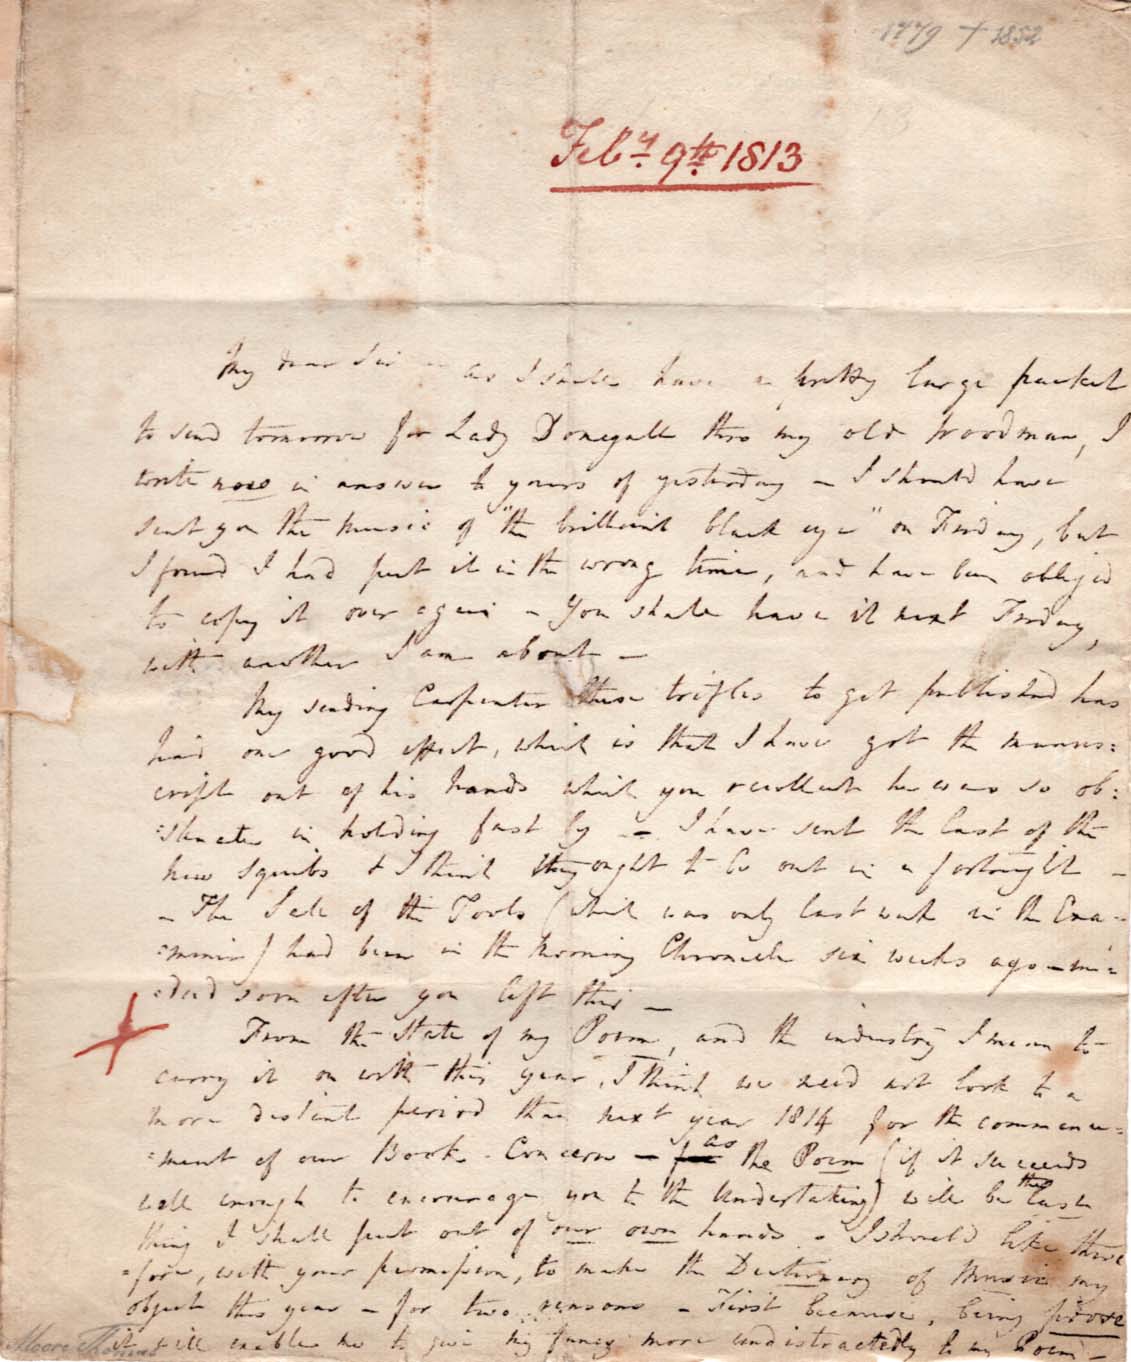 1779 + 1852
Feby. 9th. 1813
My dear Sir – as I shall have a pretty large packet
to send tomorrow for Lady Donegall thro my old Woodman, I
write now in answer to yours of yesterday – I should have
sent you the music of "the brilliant black eye" on Friday, but
I found I had put it in the wrong time, and have been obliged
to copy it over again – You shall have it next Friday,
with another I am about –
My sending Carpenter these trifles to get published has
had one good effect, which is that I have got the manus:
cript out of his hands which you recollect he was so ob:
:stinate in holding fast by – I have sent the last of the
new Squibs & I think they ought to be out in a fortnight –
– The Sale of the Tools (which was only last week in the Exa:
:miner) had been in the Morning Chronicle six weeks ago – in:
:deed soon after you left this –
From the state of my Poem, and the industry I mean to
carry it on with this year, I think we need not look to a
more distant period than next year 1814 for the commence:
:ment of our Book-Concern – as the Poem (if it succeeds
well enough to encourage you to the undertaking) will be the last
thing I shall put out of our own hands. – I should like there
:fore, with your permission, to make the Dictionary of Music my
object this year – for two reasons – First because, being prose
it will enable me to give my fancy more undistractedly to my Poem –
Moore Thomas